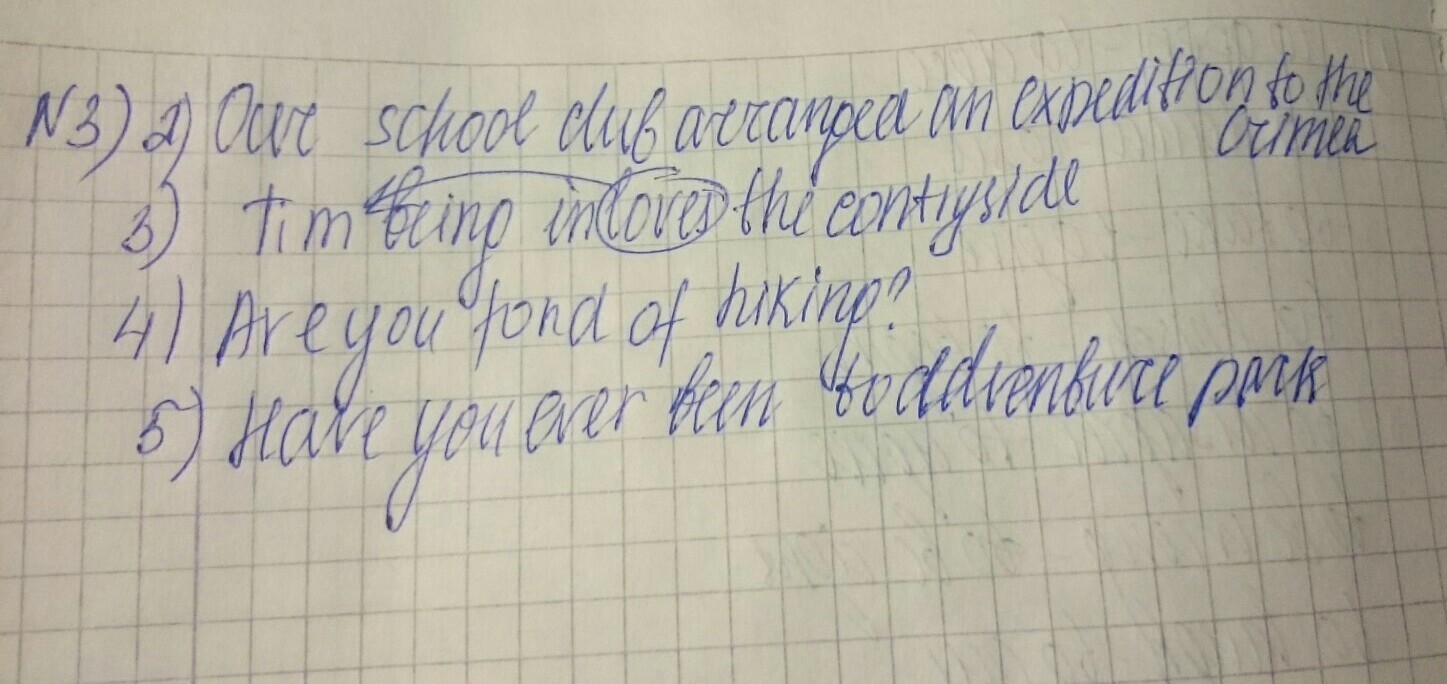 N3) 2) Our school club arranged an expedition to the
Crimea
3) Tim being in loves the contryside
4) Are you fond of hiking?
5) Have you ever been to addventure park